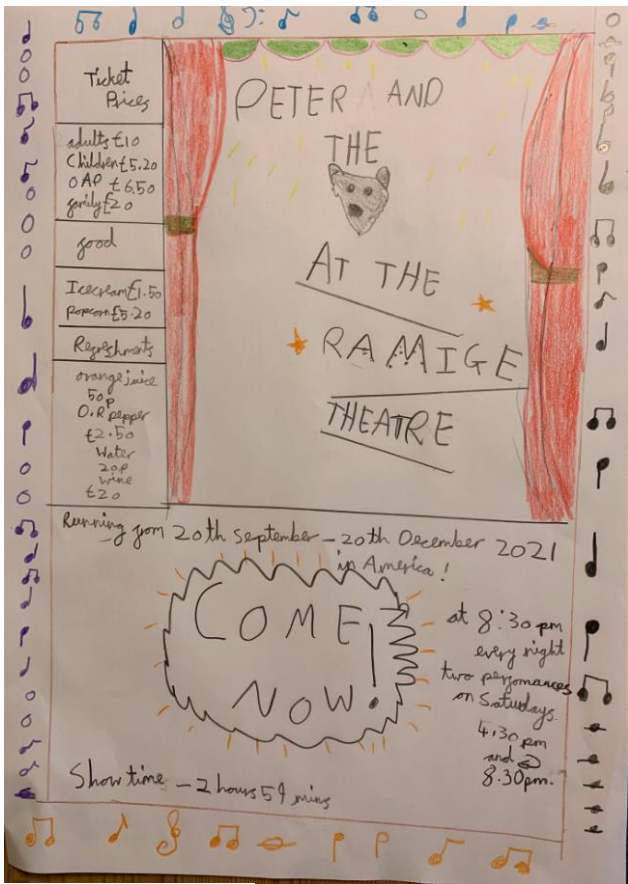 Ticket
Prices
adults £10
Children £5.20
OAP £6.50
family £20
food
Icecream £1.50
popcorn £5.20
Refreshments
orange juice
50p
D.R pepper
£2.50
Water
20p
wine
£20
PETER AND
THE
AT THE
RAMIGE
THEATRE
Running from 20th September – 20th December 2021
in America!
COME
NOW!
at 8:30 pm
every night
two perfomances
on Saturdays.
4.30 pm
and
8.30pm.
Show time – 2 hours 59 mins